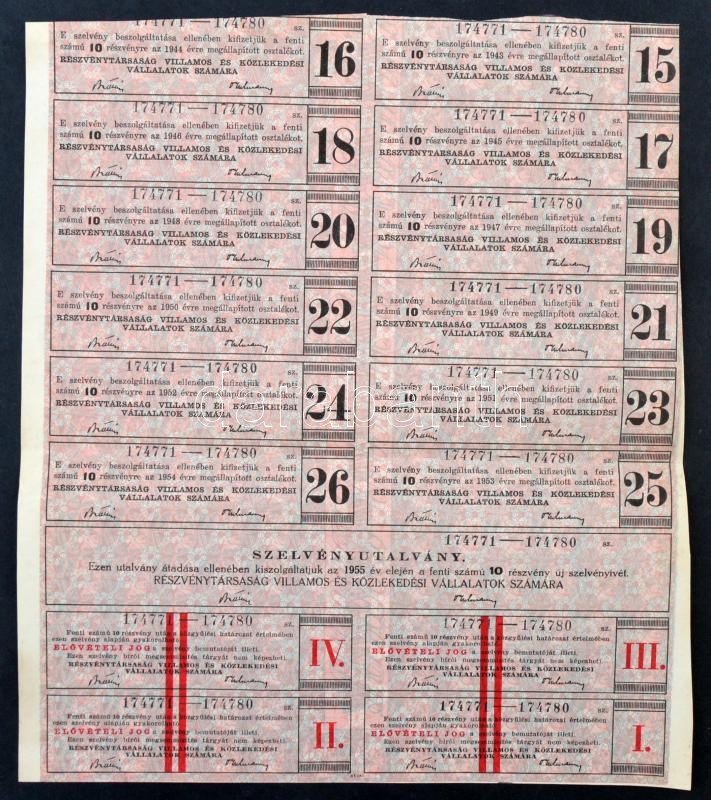 174771—174780 sz.
E szelvény beszolgáltatása ellenében kifizetjük a fenti
számú 10 részvényre az 1944 évre megállapított osztalékot.
RÉSZVÉNYTÁRSASÁG VILLAMOS ÉS KÖZLEKEDÉSI
VÁLLALATOK SZÁMÁRA
16
174771—174780 sz.
E szelvény beszolgáltatása ellenében kifizetjük a fenti
számú 10 részvényre az 1943 évre megállapított osztalékot.
RÉSZVÉNYTÁRSASÁG VILLAMOS ÉS KÖZLEKEDÉSI
VÁLLALATOK SZÁMÁRA
15
174771—174780 sz.
E szelvény beszolgáltatása ellenében kifizetjük a fenti
számú 10 részvényre az 1946 évre megállapított osztalékot.
RÉSZVÉNYTÁRSASÁG VILLAMOS ÉS KÖZLEKEDÉSI
VÁLLALATOK SZÁMÁRA
18
174771—174780 sz.
E szelvény beszolgáltatása ellenében kifizetjük a fenti
számú 10 részvényre az 1945 évre megállapított osztalékot.
RÉSZVÉNYTÁRSASÁG VILLAMOS ÉS KÖZLEKEDÉSI
VÁLLALATOK SZÁMÁRA
17
174771—174780 sz.
E szelvény beszolgáltatása ellenében kifizetjük a fenti
számú 10 részvényre az 1948 évre megállapított osztalékot.
RÉSZVÉNYTÁRSASÁG VILLAMOS ÉS KÖZLEKEDÉSI
VÁLLALATOK SZÁMÁRA
20
174771—174780 sz.
E szelvény beszolgáltatása ellenében kifizetjük a fenti
számú 10 részvényre az 1947 évre megállapított osztalékot.
RÉSZVÉNYTÁRSASÁG VILLAMOS ÉS KÖZLEKEDÉSI
VÁLLALATOK SZÁMÁRA
19
174771—174780 sz.
E szelvény beszolgáltatása ellenében kifizetjük a fenti
számú 10 részvényre az 1950 évre megállapított osztalékot.
RÉSZVÉNYTÁRSASÁG VILLAMOS ÉS KÖZLEKEDÉSI
VÁLLALATOK SZÁMÁRA
22
174771—174780 sz.
E szelvény beszolgáltatása ellenében kifizetjük a fenti
számú 10 részvényre az 1949 évre megállapított osztalékot.
RÉSZVÉNYTÁRSASÁG VILLAMOS ÉS KÖZLEKEDÉSI
VÁLLALATOK SZÁMÁRA
21
174771—174780 sz.
E szelvény beszolgáltatása ellenében kifizetjük a fenti
számú 10 részvényre az 1952 évre megállapított osztalékot.
RÉSZVÉNYTÁRSASÁG VILLAMOS ÉS KÖZLEKEDÉSI
VÁLLALATOK SZÁMÁRA
24
174771—174780 sz.
E szelvény beszolgáltatása ellenében kifizetjük a fenti
számú 10 részvényre az 1951 évre megállapított osztalékot.
RÉSZVÉNYTÁRSASÁG VILLAMOS ÉS KÖZLEKEDÉSI
VÁLLALATOK SZÁMÁRA
23
174771—174780 sz.
E szelvény beszolgáltatása ellenében kifizetjük a fenti
számú 10 részvényre az 1954 évre megállapított osztalékot.
RÉSZVÉNYTÁRSASÁG VILLAMOS ÉS KÖZLEKEDÉSI
VÁLLALATOK SZÁMÁRA
26
174771—174780 sz.
E szelvény beszolgáltatása ellenében kifizetjük a fenti
számú 10 részvényre az 1953 évre megállapított osztalékot.
RÉSZVÉNYTÁRSASÁG VILLAMOS ÉS KÖZLEKEDÉSI
VÁLLALATOK SZÁMÁRA
25
174771—174780 sz.
SZELVÉNYUTALVÁNY.
Ezen utalvány átadása ellenében kiszolgáltatjuk az 1955 év elején a fenti számú 10 részvény új szelvényívét.
RÉSZVÉNYTÁRSASÁG VILLAMOS ÉS KÖZLEKEDÉSI VÁLLALATOK SZÁMÁRA
174771—174780 sz.
Fenti számú 10 részvény után a közgyűlési határozat értelmében
ezen szelvény alapján gyakorolható
ELŐVÉTELI JOG a szelvény bemutatóját illeti.
Ezen szelvény bírói megsemmisítés tárgyát nem képezheti.
RÉSZVÉNYTÁRSASÁG VILLAMOS ÉS KÖZLEKEDÉSI
VÁLLALATOK SZÁMÁRA
IV.
174771—174780 sz.
Fenti számú 10 részvény után a közgyűlési határozat értelmében
ezen szelvény alapján gyakorolható
ELŐVÉTELI JOG a szelvény bemutatóját illeti.
Ezen szelvény bírói megsemmisítés tárgyát nem képezheti.
RÉSZVÉNYTÁRSASÁG VILLAMOS ÉS KÖZLEKEDÉSI
VÁLLALATOK SZÁMÁRA
III.
174771—174780 sz.
Fenti számú 10 részvény után a közgyűlési határozat értelmében
ezen szelvény alapján gyakorolható
ELŐVÉTELI JOG a szelvény bemutatóját illeti.
Ezen szelvény bírói megsemmisítés tárgyát nem képezheti.
RÉSZVÉNYTÁRSASÁG VILLAMOS ÉS KÖZLEKEDÉSI
VÁLLALATOK SZÁMÁRA
II.
174771—174780 sz.
Fenti számú 10 részvény után a közgyűlési határozat értelmében
ezen szelvény alapján gyakorolható
ELŐVÉTELI JOG a szelvény bemutatóját illeti.
Ezen szelvény bírói megsemmisítés tárgyát nem képezheti.
RÉSZVÉNYTÁRSASÁG VILLAMOS ÉS KÖZLEKEDÉSI
VÁLLALATOK SZÁMÁRA
I.